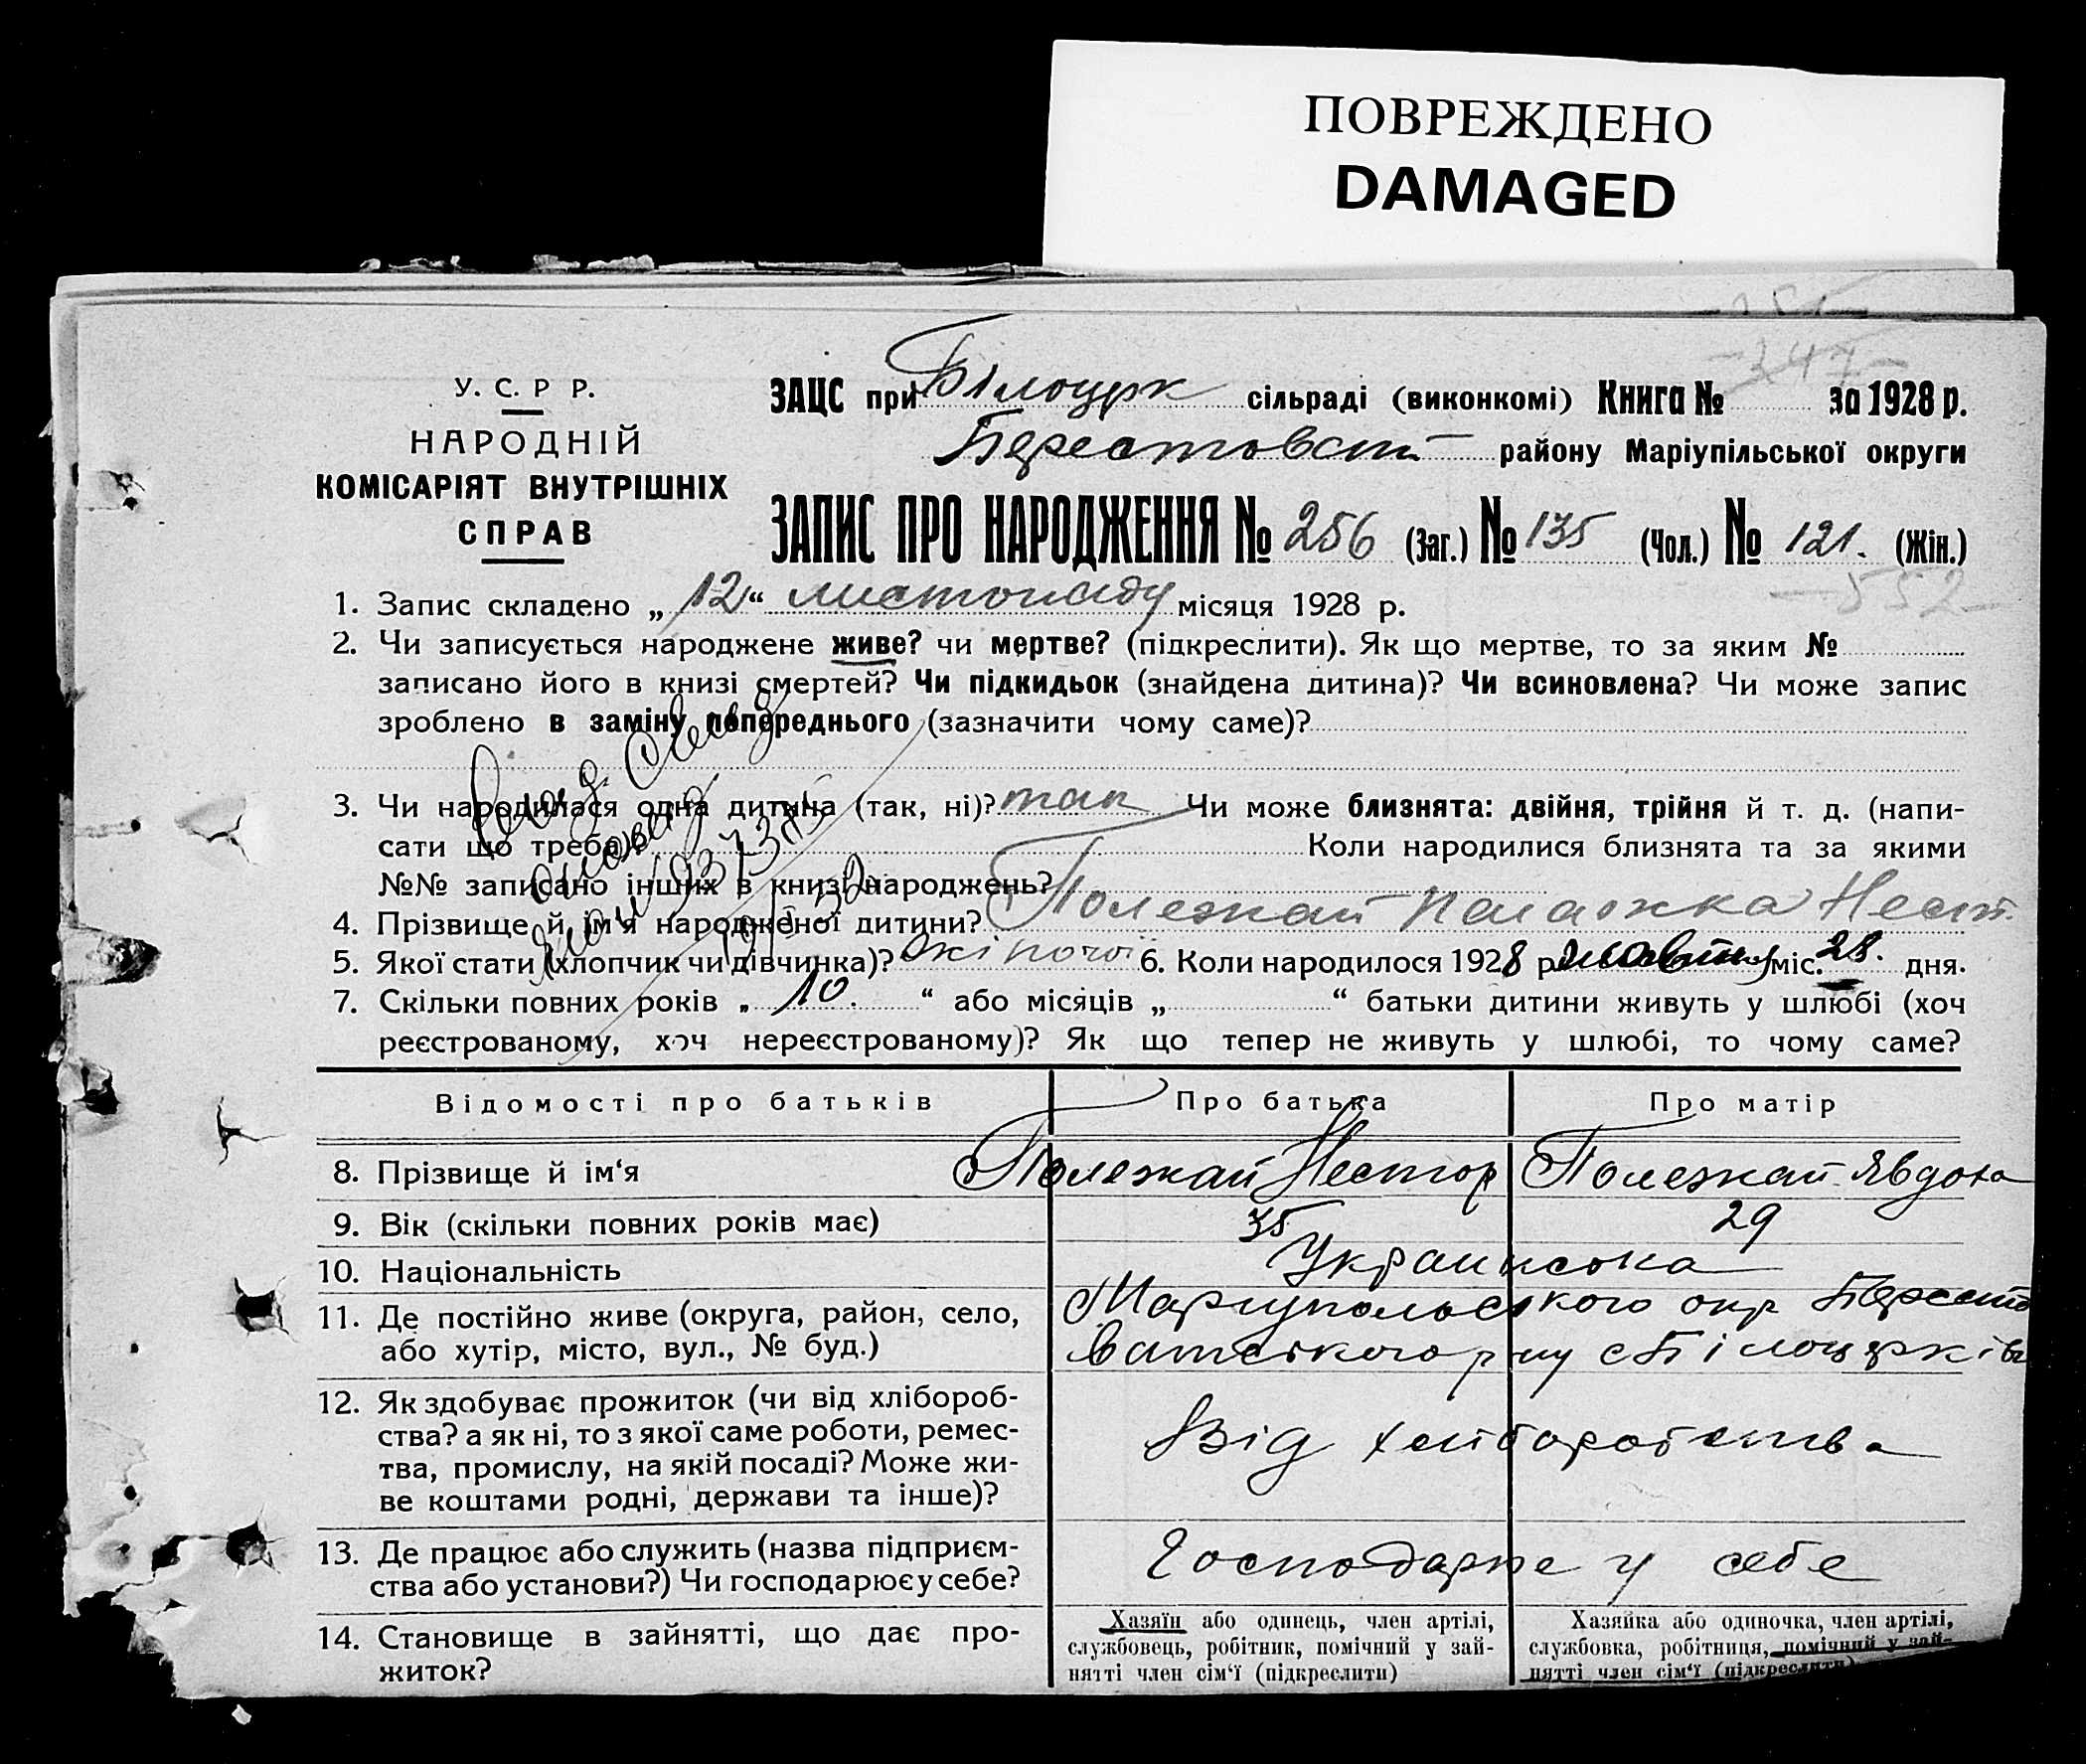 ПОВРЕЖДЕНО
DAMAGED
-347-
У. С. Р Р.
НАРОДНІЙ
КОМІСАРІЯТ ВНУТРІШНІХ
СПРАВ
ЗАЦС при Білоцерк сільраді (виконкомі) Книга № за 1928 р.
Берестовськ району Маріупільської округи
ЗАПИС ПРО НАРОДЖЕННЯ № 256 (Заг.) № 135 (Чол.) № 121. (Жін.)
-552-
1. Запис складено „12“ листопаду місяця 1928 р.
2. Чи записується народжене живе? чи мертве? (підкреслити). Як що мертве, то за яким №
записано його в книзі смертей? Чи підкидьок (знайдена дитина)? Чи всиновлена? Чи може запис
зроблено в заміну попереднього (зазначити чому саме)?
3. Чи народилася одна дитина (так, ні)? так Чи може близнята: двійня, трійня й т. д. (напи-
сати що треба)? Коли народилися близнята та за якими
№№ записано інших в книзі народжень?
4. Прізвище й ім'я народженої дитини? Полежай Палажка Нест.
5. Якої стати (хлопчик чи дівчинка)? жіночої 6. Коли народилося 1928 р. жовтня міс. 28. дня.
7. Скільки повних років „10.“ або місяців „ “ батьки дитини живуть у шлюбі (хоч
реєстрованому, хоч нереєстрованому)? Як що тепер не живуть у шлюбі, то чому саме?
Відомості про батьків Про батька Про матір
8. Прізвище й ім‘я Полежай Нестор Полежай Явдоха
9. Вік (скільки повних років має) 35 29
10. Національність Украинська
11. Де постійно живе (округа, район, село, Мариупольського окр Бересто
або хутір, місто, вул., № буд.) ватського р-ну с Білоцерківк
12. Як здобуває прожиток (чи від хлібороб-
ства? а як ні, то з якої саме роботи, ремес- Від хлиборобства
тва, промислу, на якій посаді? Може жи-
ве коштами родні, держави та інше)?
13. Де працює або служить (назва підприєм- Господарює у себе
ства або установи?) Чи господарює у себе?
14. Становище в зайнятті, що дає про-
житок?
Хазяїн або одинець, член артілі,
службовець, робітник, помічний у зай-
нятті член сім‘ї (підкреслити)
Хазяйка або одиночка, член артілі,
службовка, робітниця, помічний у зай-
нятті член сім‘ї (підкреслити)